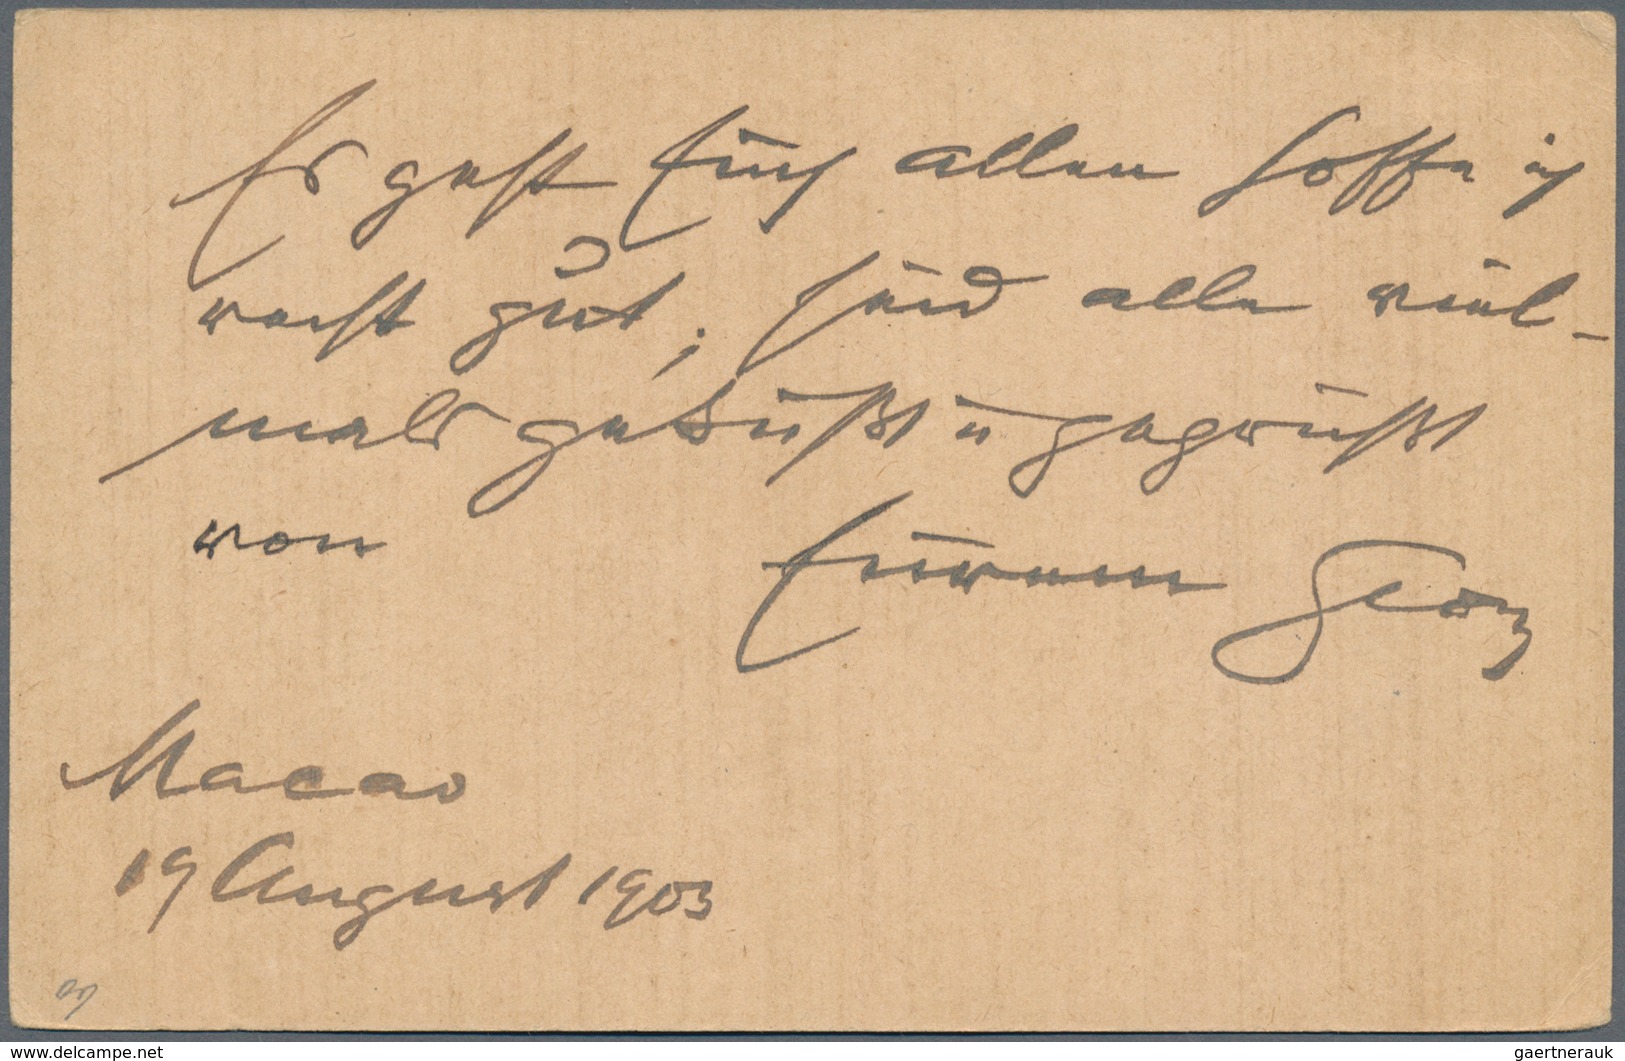 Es geht Euch allen hoffe ich
recht gut; seid alle viel-
mals geküßt u gegrüßt
von Eurem Georg
Macao
19 August 1903
© www.delcampe.net
gaertnerauk